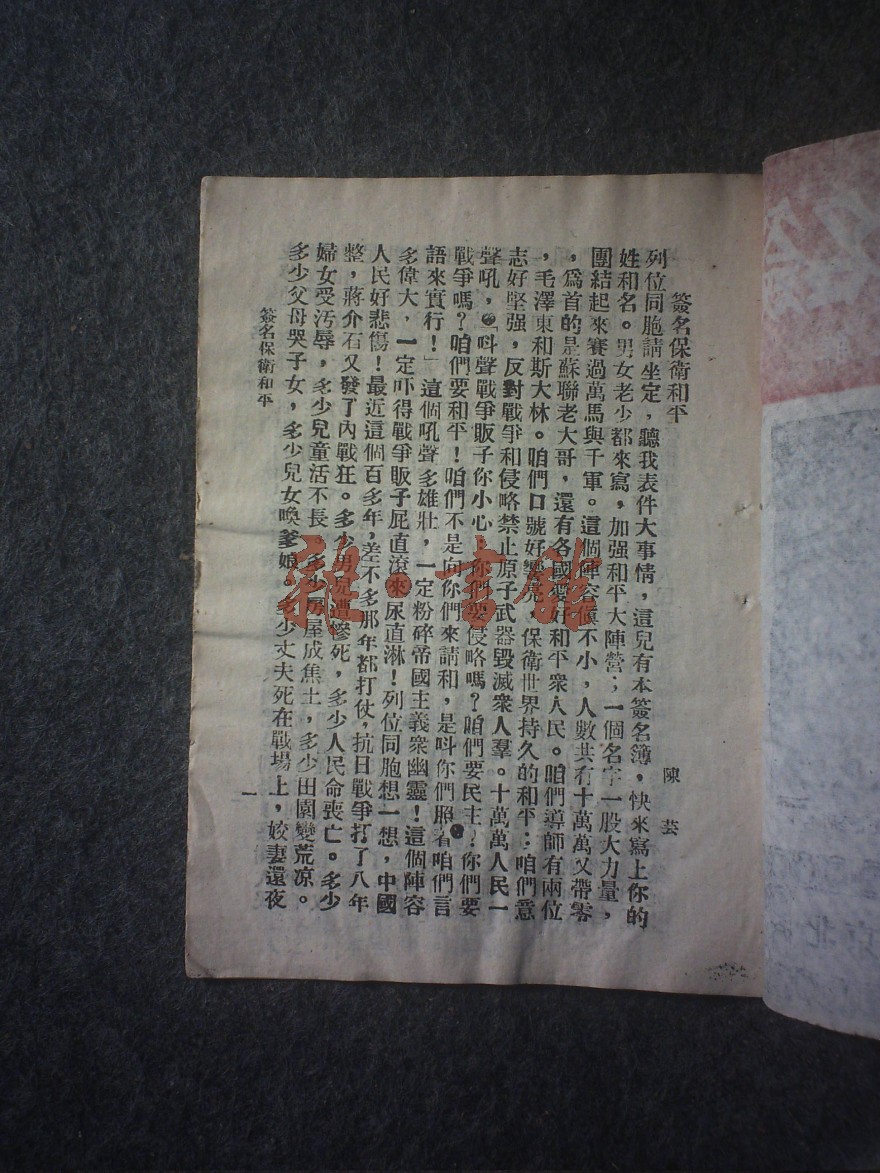 簽名保衛和平
陳芸
列位同胞請坐定，聽我表件大事情，這兒有本簽名簿，快來寫上你的
姓和名。男女老少都來寫，加强和平大陣營；一個名字一股大力量，
團結起來賽過萬馬與千軍。這個陣容眞不小，人數共有十萬萬又帶零
，爲首的是蘇聯老大哥，還有各國愛好和平衆人民。咱們導師有兩位
，毛澤東和斯大林。咱們口號好響亮，保衛世界持久的和平：咱們意
志好堅强，反對戰爭和侵略禁止原子武器毀滅衆人羣。十萬萬人民一
聲吼，「呌聲戰爭販子你小心，你們要侵略嗎？咱們要民主！你們要
戰爭嗎？咱們要和平！咱們不是向你們來請和，是呌你們照着咱們言
語來實行！」這個吼聲多雄壯，一定粉碎帝國主義衆幽靈！這個陣容
多偉大，一定吓得戰爭販子屁直滾來尿直淋！列位同胞想一想，中國
人民好悲傷！最近這個百多年，差不多那年都打仗，抗日戰爭打了八年
整，蔣介石又發了內戰狂。多少男兒遭慘死，多少人民命喪亡。多少
婦女受汚辱，多少兒童活不長。多少房屋成焦土，多少田園變荒凉。
多少父母哭子女，多少兒女喚爹娘。多少丈夫死在戰場上，姣妻還夜
簽名保衛和平
一
雜·書館